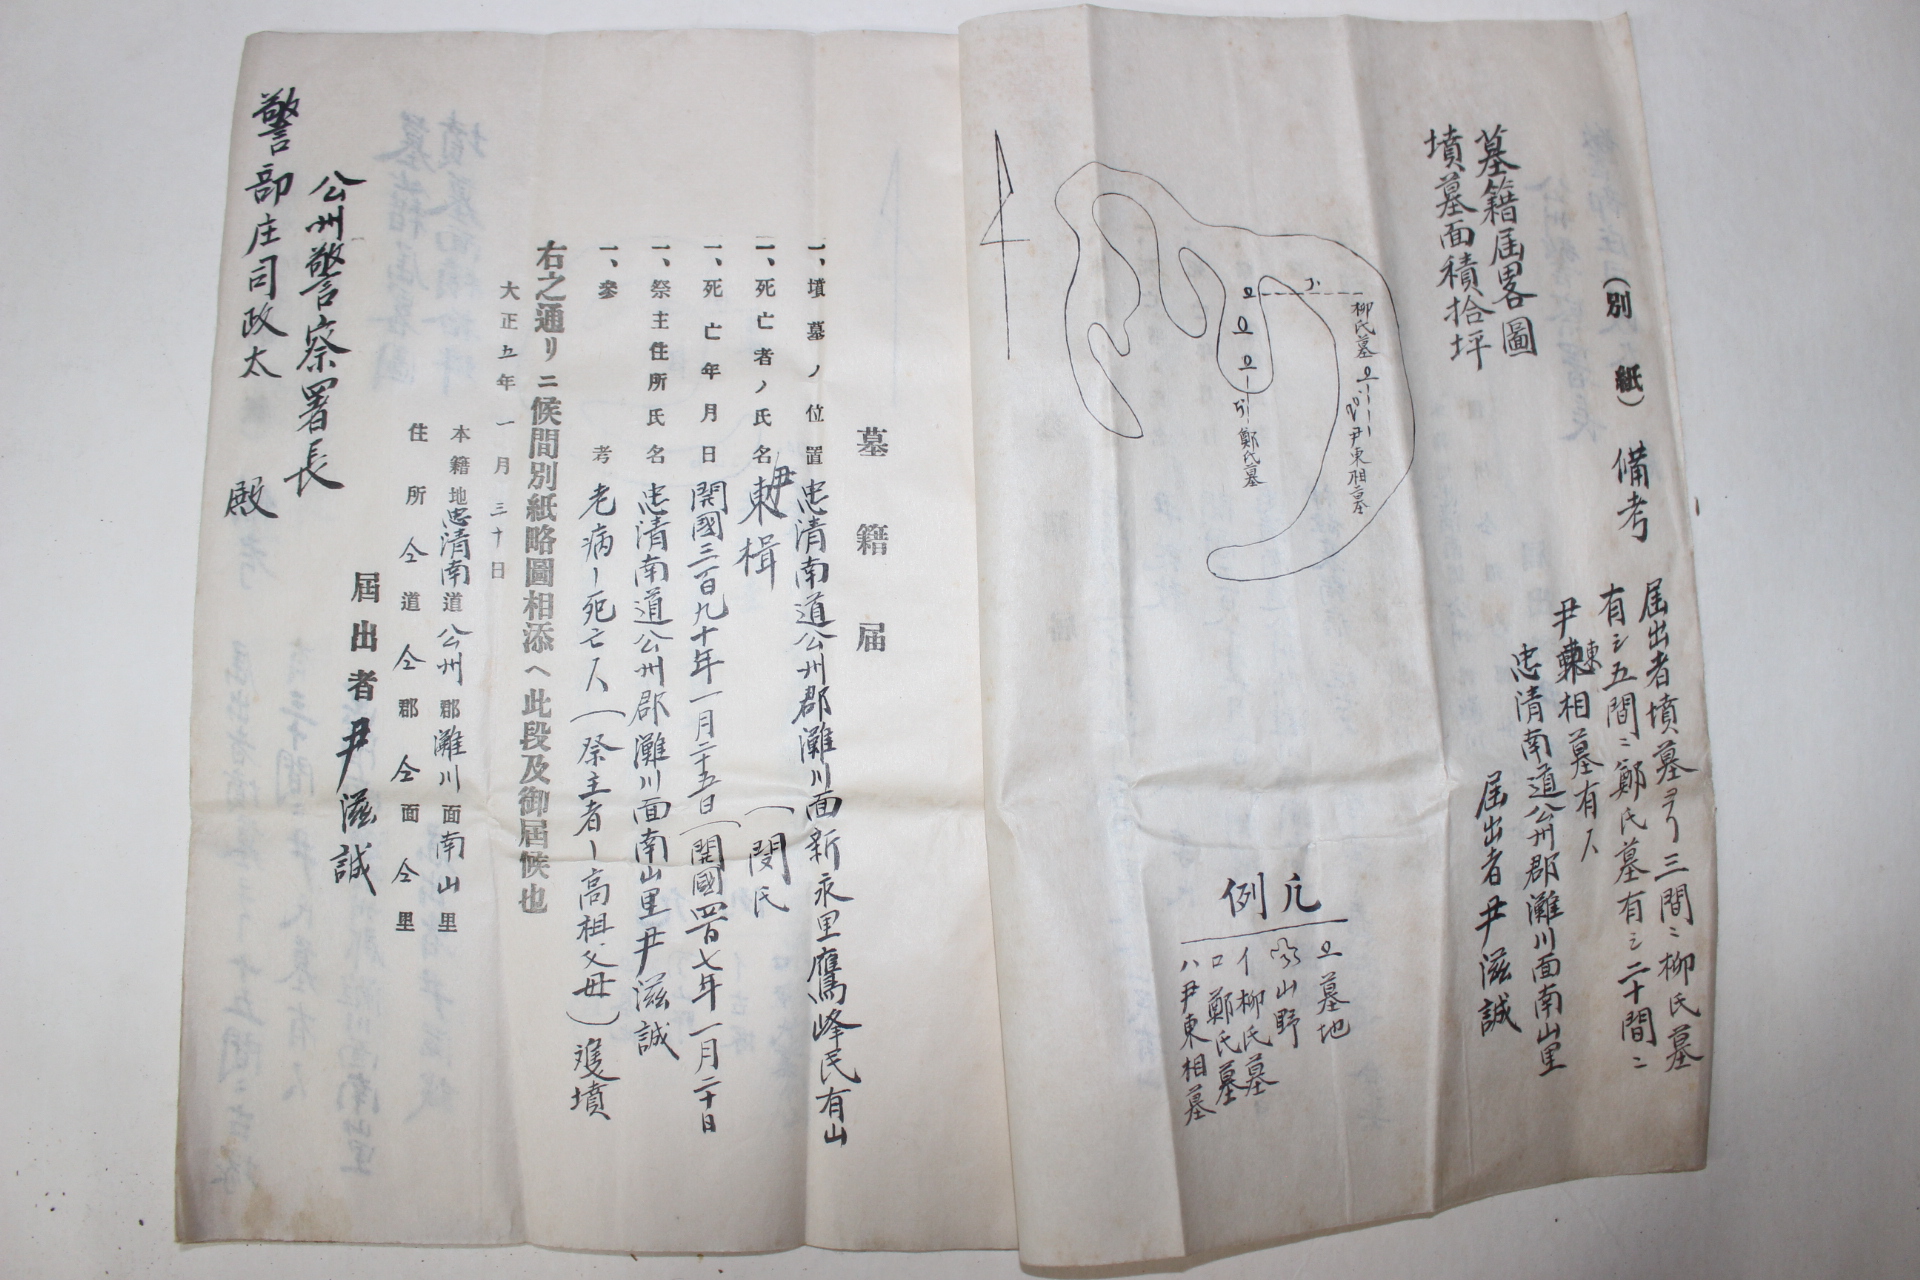 (別紙)
墓籍屆畧圖
墳墓面積拾坪
備考
屆出者墳墓ヨリ三間ニ柳氏墓
有シ五間ニ鄭氏墓有シ二十間ニ
尹東相墓有ス
忠清南道公州郡灘川面南山里
屆出者 尹滋誠
柳氏墓
尹東相墓
鄭氏墓
凡例
墓地
山野
イ 柳氏墓
ロ 鄭氏墓
ハ 尹東相墓
墓籍屆
一、墳墓ノ位置 忠清南道公州郡灘川面新永里鷹峰民有山
一、死亡者ノ氏名 尹東楫 (閔氏
一、死亡年月日 開國三百九十年一月二十五日(開國四百七年一月二十日
一、祭主住所氏名 忠清南道公州郡灘川面南山里尹滋誠
一、參考 老病ー死亡人(祭主者ー高祖父母)雙墳
右之通リニ候間別紙略圖相添ヘ此段及御屆候也
大正五年一月三十日
本籍地忠清南道公州郡灘川面南山里
住所仝道仝郡仝面仝里
屆出者 尹滋誠
公州警察署長
警部庄司政太 殿